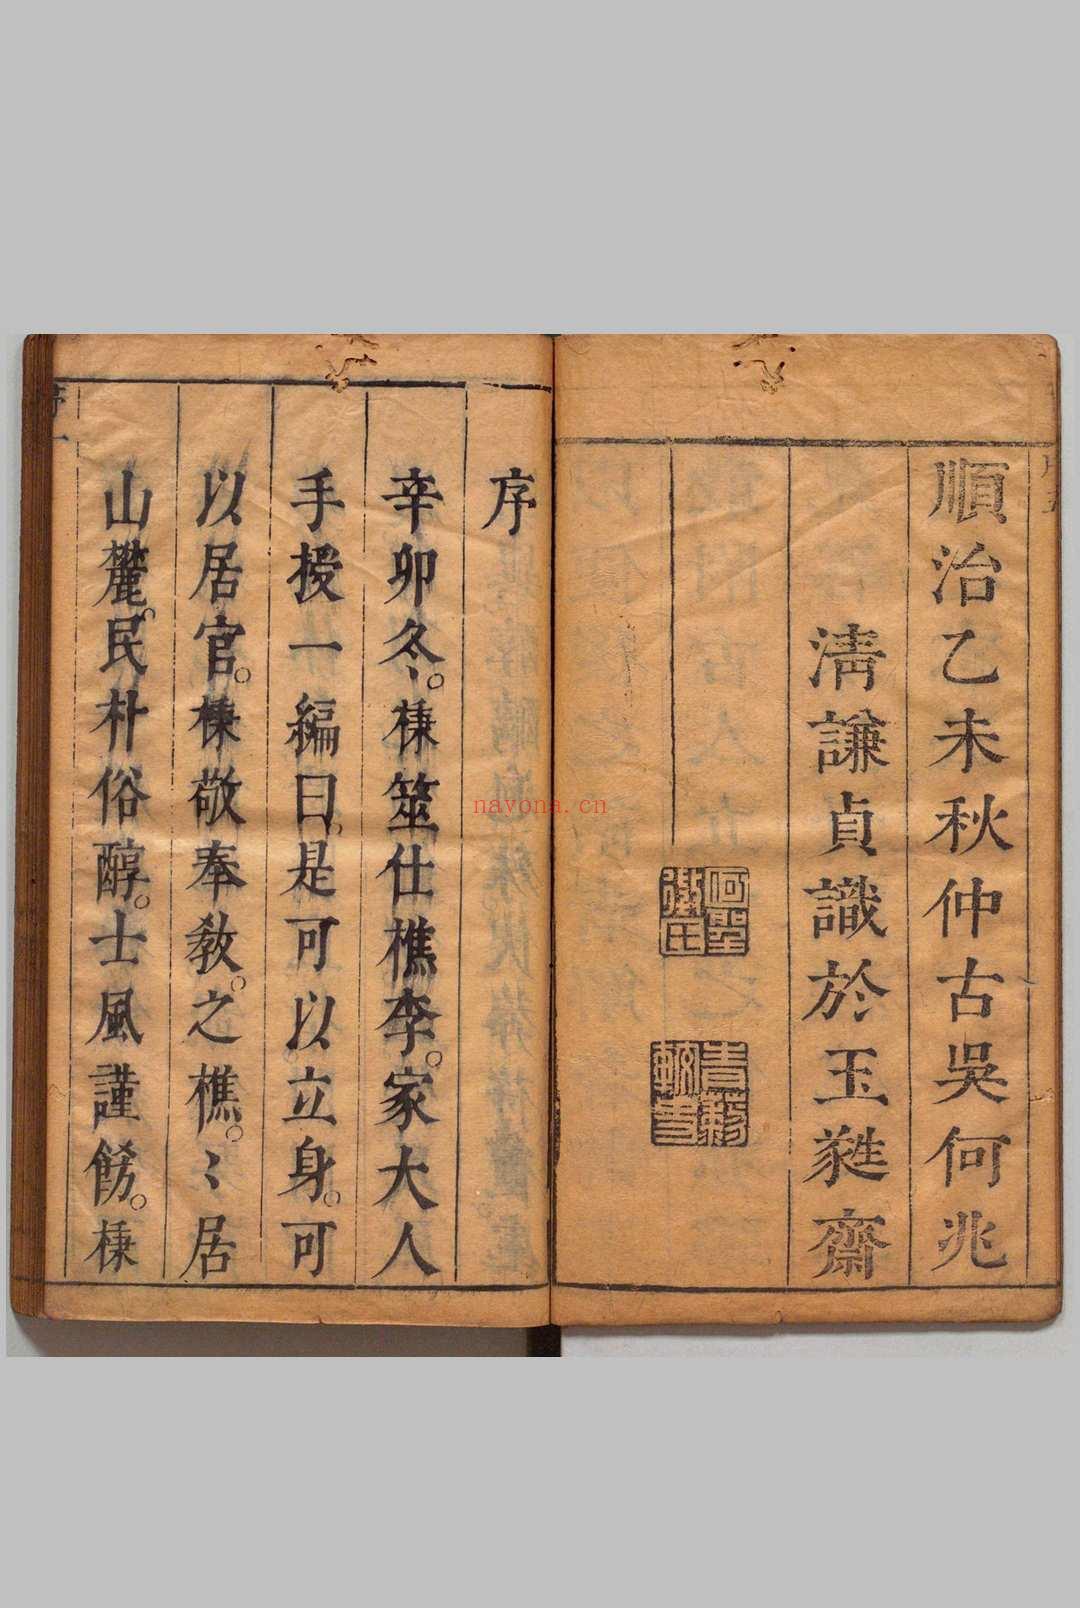 順治乙未秋仲古吳何兆
清謙貞識於玉蕤齋
序
辛卯冬。棟筮仕樵李。家大人
手授一編曰。是可以立身。可
以居官。棟敬奉教。之樵。〻居
山麓。民朴俗醇。士風謹飭。棟
navona.cn